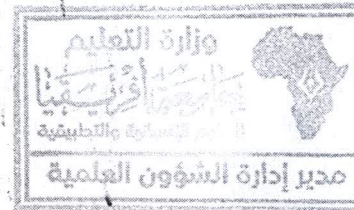 وزارة التعليم
جامعة أفريقيا
للعلوم الإنسانية والتطبيقية
مدير إدارة الشؤون العلمية